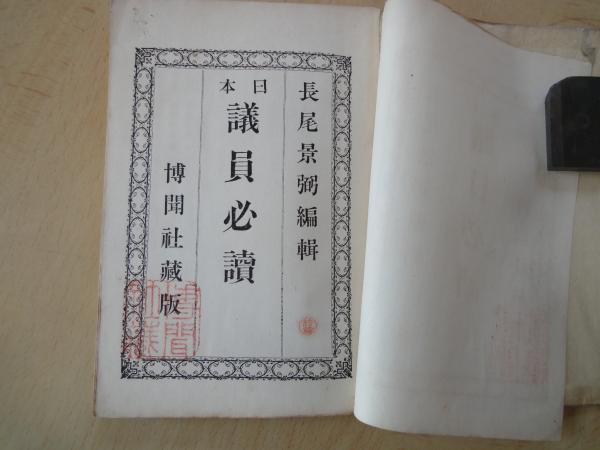 長尾景弼編輯
日本
議員必讀
博聞社藏版